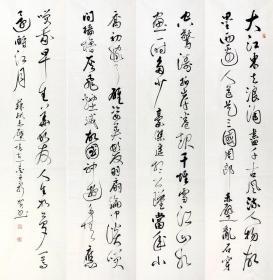 大江東去浪淘盡千古風流人物故
壘西邊人道是三國周郎赤壁亂石穿
空驚濤拍岸捲起千堆雪江山如
畫一時多少豪傑遙想公瑾當年小
喬初嫁了雄姿英發羽扇綸巾談笑
間檣櫓灰飛煙滅故國神遊多情應
笑我早生華髮人生如夢一尊
還酹江月